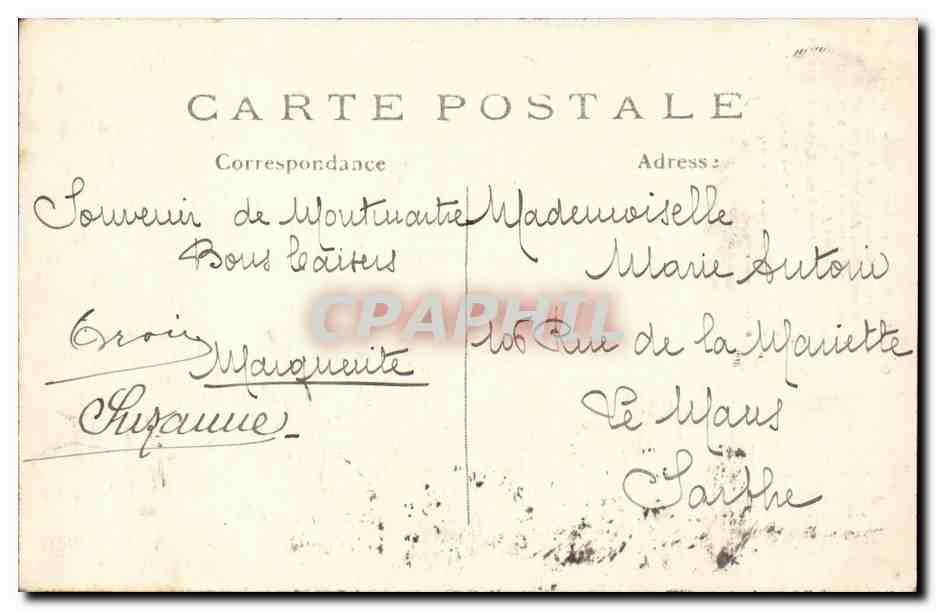 CARTE POSTALE
Correspondance
Adresse
Souvenir de Montmartre
Bons baisers
Marguerite
Suzanne
Mademoiselle
Marie Antoin
106 Rue de la Mariette
Le Mans
Sarthe
CPAPHIL